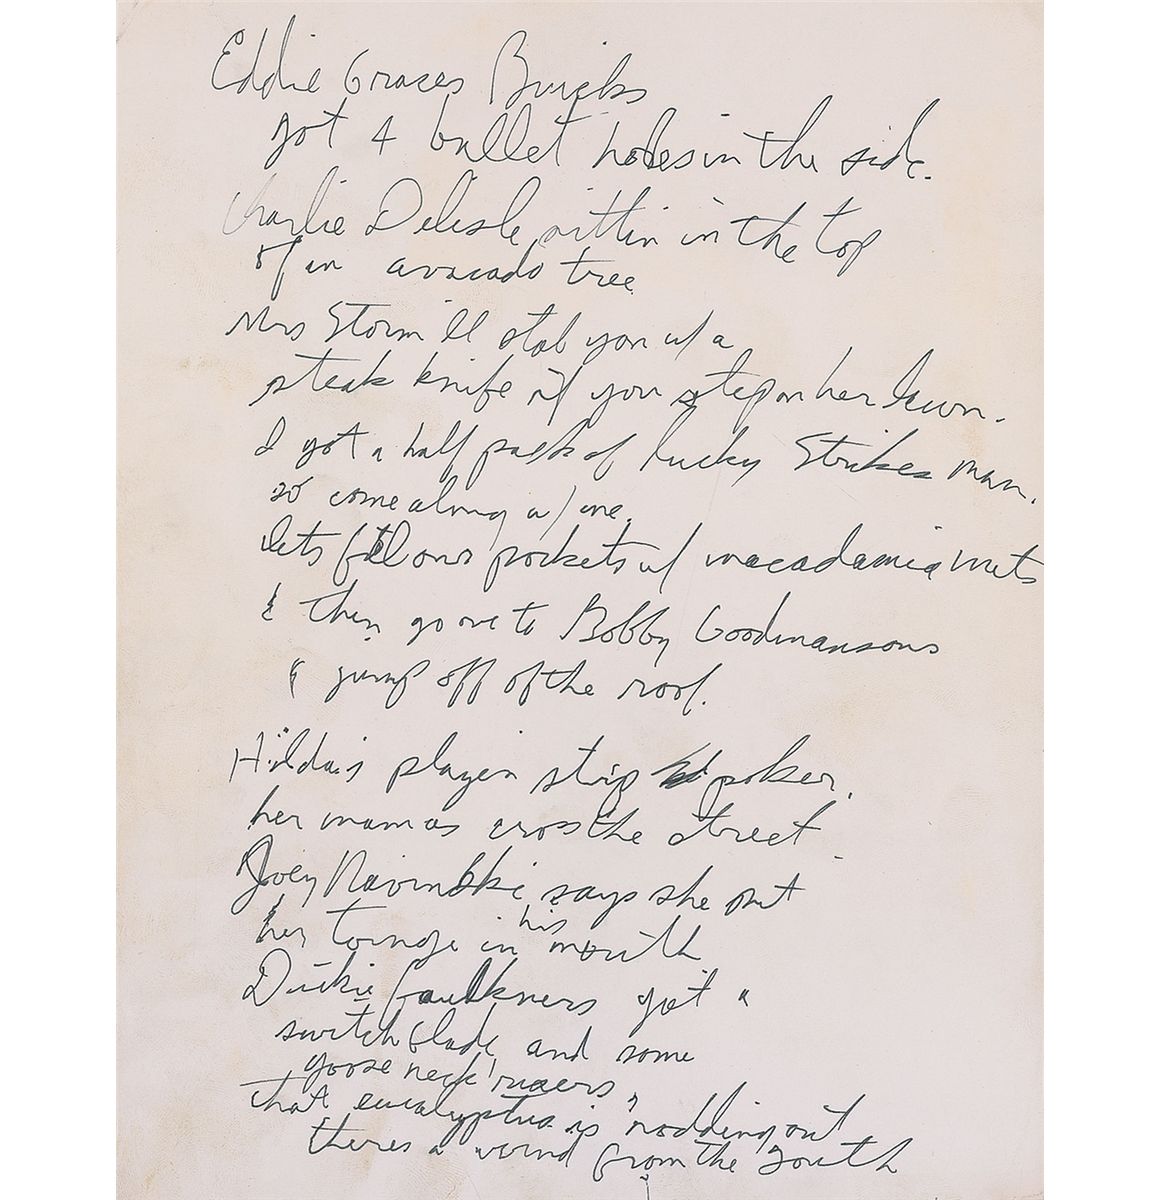 Eddie Graces Buicks
got 4 bullet holes in the side.
Charlie Delisle sittin in the top
of an avacado tree
Mrs Storm'll stab you w/ a
steak knife if you step on her lawn.
I got a half pack of Lucky Strikes man.
so come along w/ me.
lets fill our pockets w/ macadamia nuts
& then go ove to Bobby Goodmansons
& jump off of the roof.
Hilda's playen strip poker.
her mamas cross the street.
Joey Navinski says she put
her tounge in his mouth
Dickie Faulkners got a
switchblade and some
gooseneck risers,
that eucalyptus is nodding out
theres a wind from the south